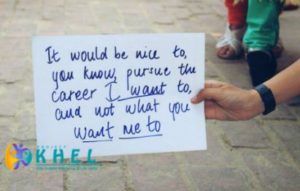 It would be nice to,
you know, pursue the
career I want to,
and not what you
want me to
KHEL